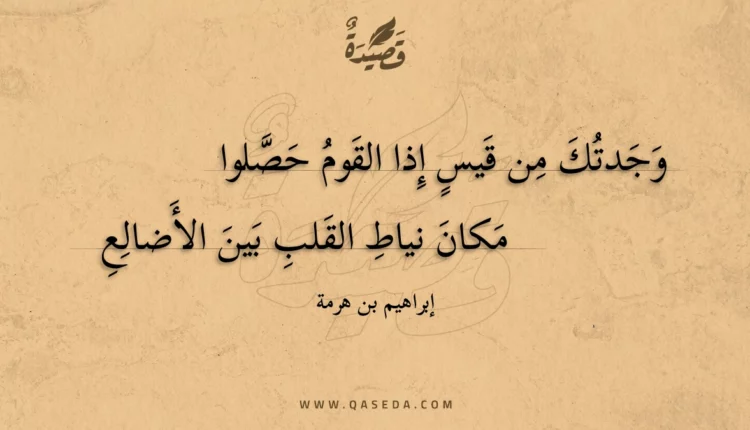 قَصِيْدَةٌ
وَجَدتُكَ مِن قَيسٍ إِذا القَومُ حَصَّلوا
مَكانَ نياطِ القَلبِ بَينَ الأَضالِعِ
إبراهيم بن هرمة
WWW.QASEDA.COM